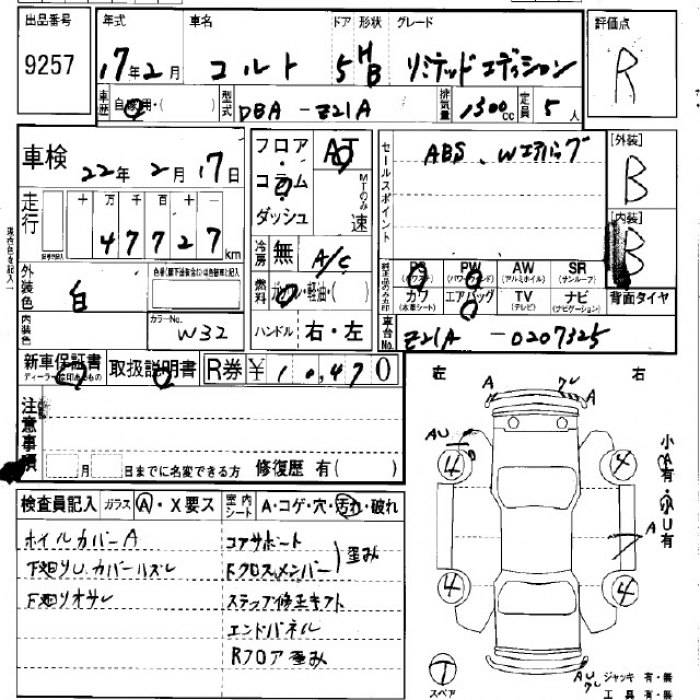 出品番号 年式 車名 ドア 形状 グレード 評価点
9257 17年2月 コルト 5 HB リミテッドエディション R
車歴 自家用・( ) 型式 DBA-Z21A 排気量 1300cc 定員 5人
車検 22年2月17日
フロア AT
コラム
ダッシュ MTのみ 速
セールスポイント ABS、Wエアバッグ
[外装] B
[内装] B
走行 十 万 千 百 十 一
47727 km
冷房 無 A/C
燃料 ガソリン・軽油・( )
純正品のみ○印 PS (パワステ) PW (パワーウィンド) AW (アルミホイル) SR (サンルーフ)
カワ (本革シート) エアバッグ TV (テレビ) ナビ (ナビゲーション) 背面タイヤ
外装色 白 色替(廊下途替は元色を記入)
内装色 カラーNo. W32
ハンドル 右・左
車台No. Z21A-0207325
新車保証書 ディーラー捺印あるもの 取扱説明書 R券 ¥10,470
注意事項
月 日までに名変できる方 修復歴 有( )
左 右
検査員記入 ガラス A・X要ス 室内シート A・コゲ・穴・汚れ・破れ
ホイルカバーA コアサポート
下廻りU.カバーハズレ Fクロスメンバー 歪み
下廻りオサレ ステップ修正キズト
エンドパネル
Rフロア歪み
A クレ A
AU
4 4
小A有・小U有
A
4 4
T スペア
AU クレ
ジャッキ 有・無
工具 有・無